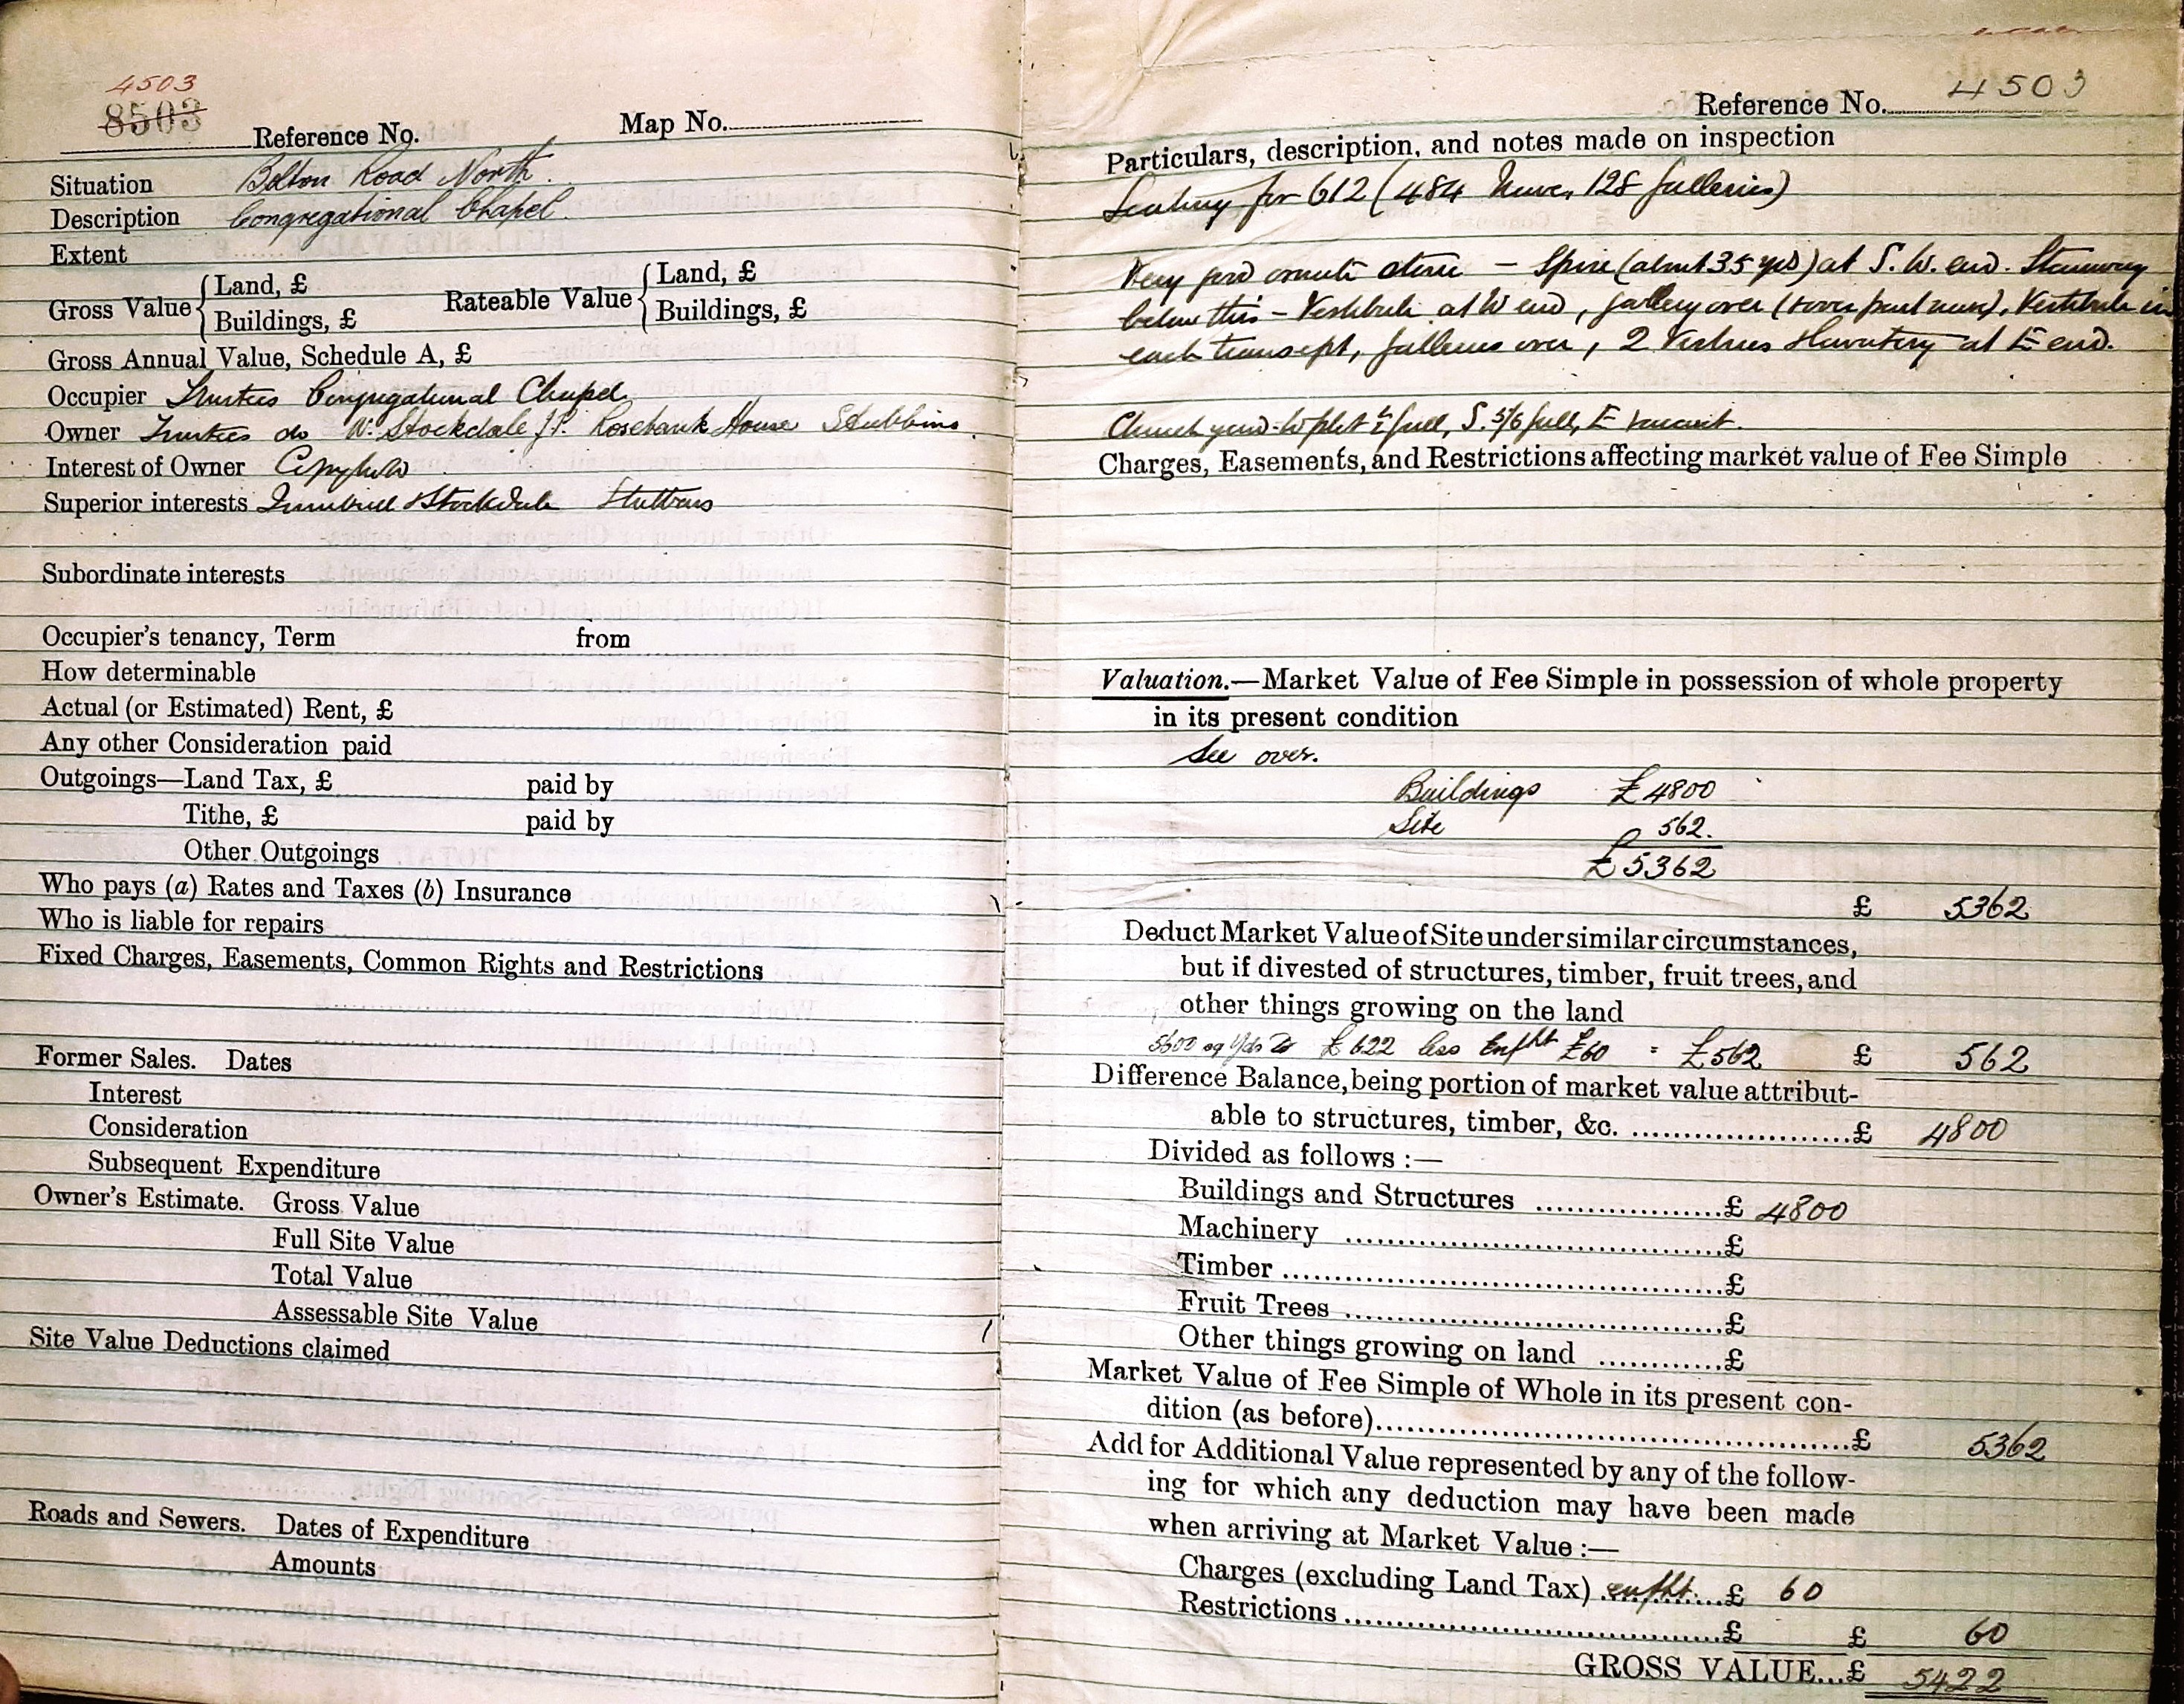 4503
8503
Reference No. Map No.
Situation Bolton Road North.
Description Congregational Chapel.
Extent
Gross Value { Land, £ Rateable Value { Land, £
Buildings, £ Buildings, £
Gross Annual Value, Schedule A, £
Occupier Trustees Congregational Chapel
Owner Trustees do W. Stockdale J.P. Rosebank House Stubbins.
Interest of Owner Copyhold
Superior interests Turnbull & Stockdale Stubbins
Subordinate interests
Occupier's tenancy, Term from
How determinable
Actual (or Estimated) Rent, £
Any other Consideration paid
Outgoings—Land Tax, £ paid by
Tithe, £ paid by
Other Outgoings
Who pays (a) Rates and Taxes (b) Insurance
Who is liable for repairs
Fixed Charges, Easements, Common Rights and Restrictions
Former Sales. Dates
Interest
Consideration
Subsequent Expenditure
Owner's Estimate. Gross Value
Full Site Value
Total Value
Assessable Site Value
Site Value Deductions claimed
Roads and Sewers. Dates of Expenditure
Amounts
Reference No. 4503
Particulars, description, and notes made on inspection
Seating for 612 (484 Nave, 128 Galleries)
Very good ornate stone - Spire (about 35 yds) at S. W. end. Stairway
below this - Vestibule at W end, gallery over (& over part nave), Vestibule in
each transept, galleries over, 2 Vestries & lavatory at E end.
Church yard - W plot full, S. 5/6 full, E vacant.
Charges, Easements, and Restrictions affecting market value of Fee Simple
Valuation.—Market Value of Fee Simple in possession of whole property
in its present condition
See over.
Buildings £4800
Site 562.
£5362
£ 5362
Deduct Market Value of Site under similar circumstances,
but if divested of structures, timber, fruit trees, and
other things growing on the land
5600 sq yds £622 less Enfht £60 = £562 £ 562
Difference Balance, being portion of market value attribut-
able to structures, timber, &c. ....................£ 4800
Divided as follows :—
Buildings and Structures ....................£ 4800
Machinery ....................£
Timber ....................£
Fruit Trees ....................£
Other things growing on land ............£
Market Value of Fee Simple of Whole in its present con-
dition (as before)....................£ 5362
Add for Additional Value represented by any of the follow-
ing for which any deduction may have been made
when arriving at Market Value :—
Charges (excluding Land Tax) enfht. £ 60
Restrictions ....................£ £ 60
GROSS VALUE...£ 5422